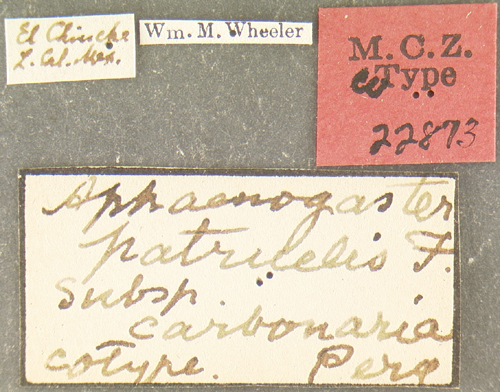 El Chinche
L. Cal. Mex.
Wm. M. Wheeler
M.C.Z.
CoType
22873
Aphaenogaster
patruelis F.
subsp.
carbonaria
cotype. Perg